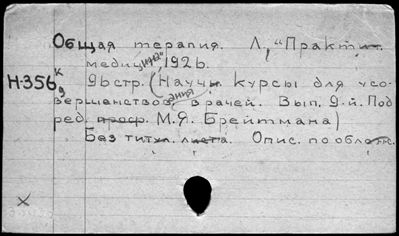 Общая терапия. Л., "Практич.
медицина" 1926.
Н-356 к/9 96 стр. (Научн. курсы для усо-
вершенствования врачей. Вып. 9-й. Под
ред. проф. М.Я. Брейтмана)
Без титул. листа. Опис. по облож.
х